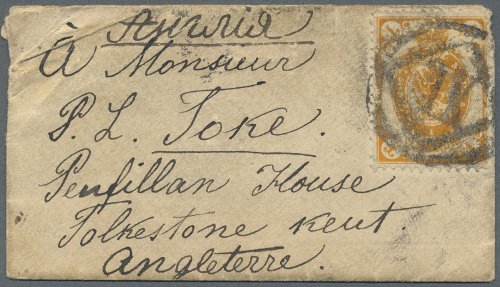 Англия
À Monsieur
P. L. Toke.
Penfillan House
Folkestone Kent.
Angleterre.